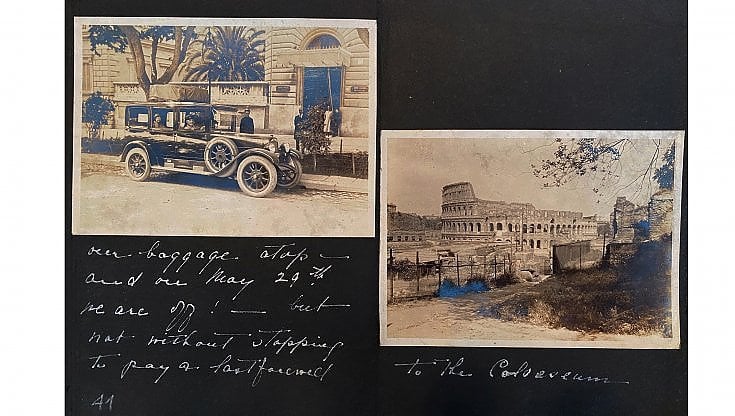 our baggage atop –
and on May 29th
we are off! – but
not without stopping
to pay a last farewell
to the Colosseum
41